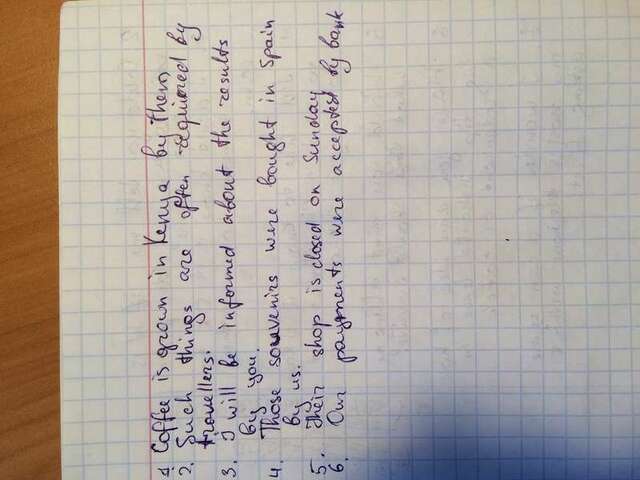 1. Coffee is grown in Kenya by them
2. Such things are often required by
travellers.
3. I will be informed about the results
by you.
4. Those souvenirs were bought in Spain
by us.
5. Their shop is closed on Sunday
6. Our payments were accepted by bank